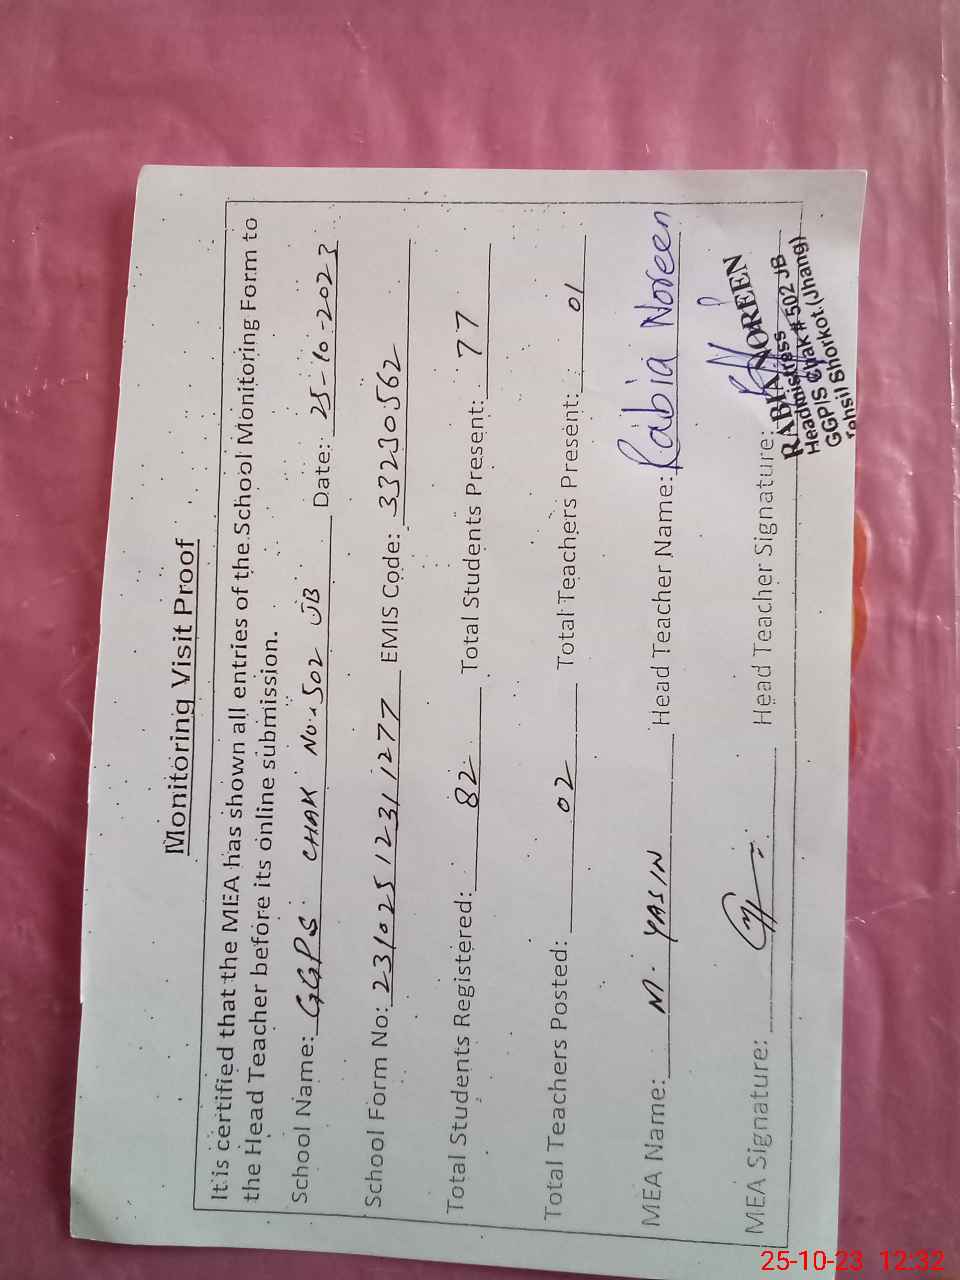 Monitoring Visit Proof
It is certified that the MEA has shown all entries of the School Monitoring Form to
the Head Teacher before its online submission.
School Name: GGPS CHAK No. 502 JB Date: 25-10-2023
School Form No: 231025 1231277 EMIS Code: 33230562
Total Students Registered: 82 Total Students Present: 77
Total Teachers Posted: 02 Total Teachers Present: 01
MEA Name: M. YASIN Head Teacher Name: Rabia Noreen
MEA Signature: Head Teacher Signature:
RABIA NOREEN
Headmistress
GGPIS Chak # 502 JB
Tehsil Shorkot (Jhang)
25-10-23 12:32